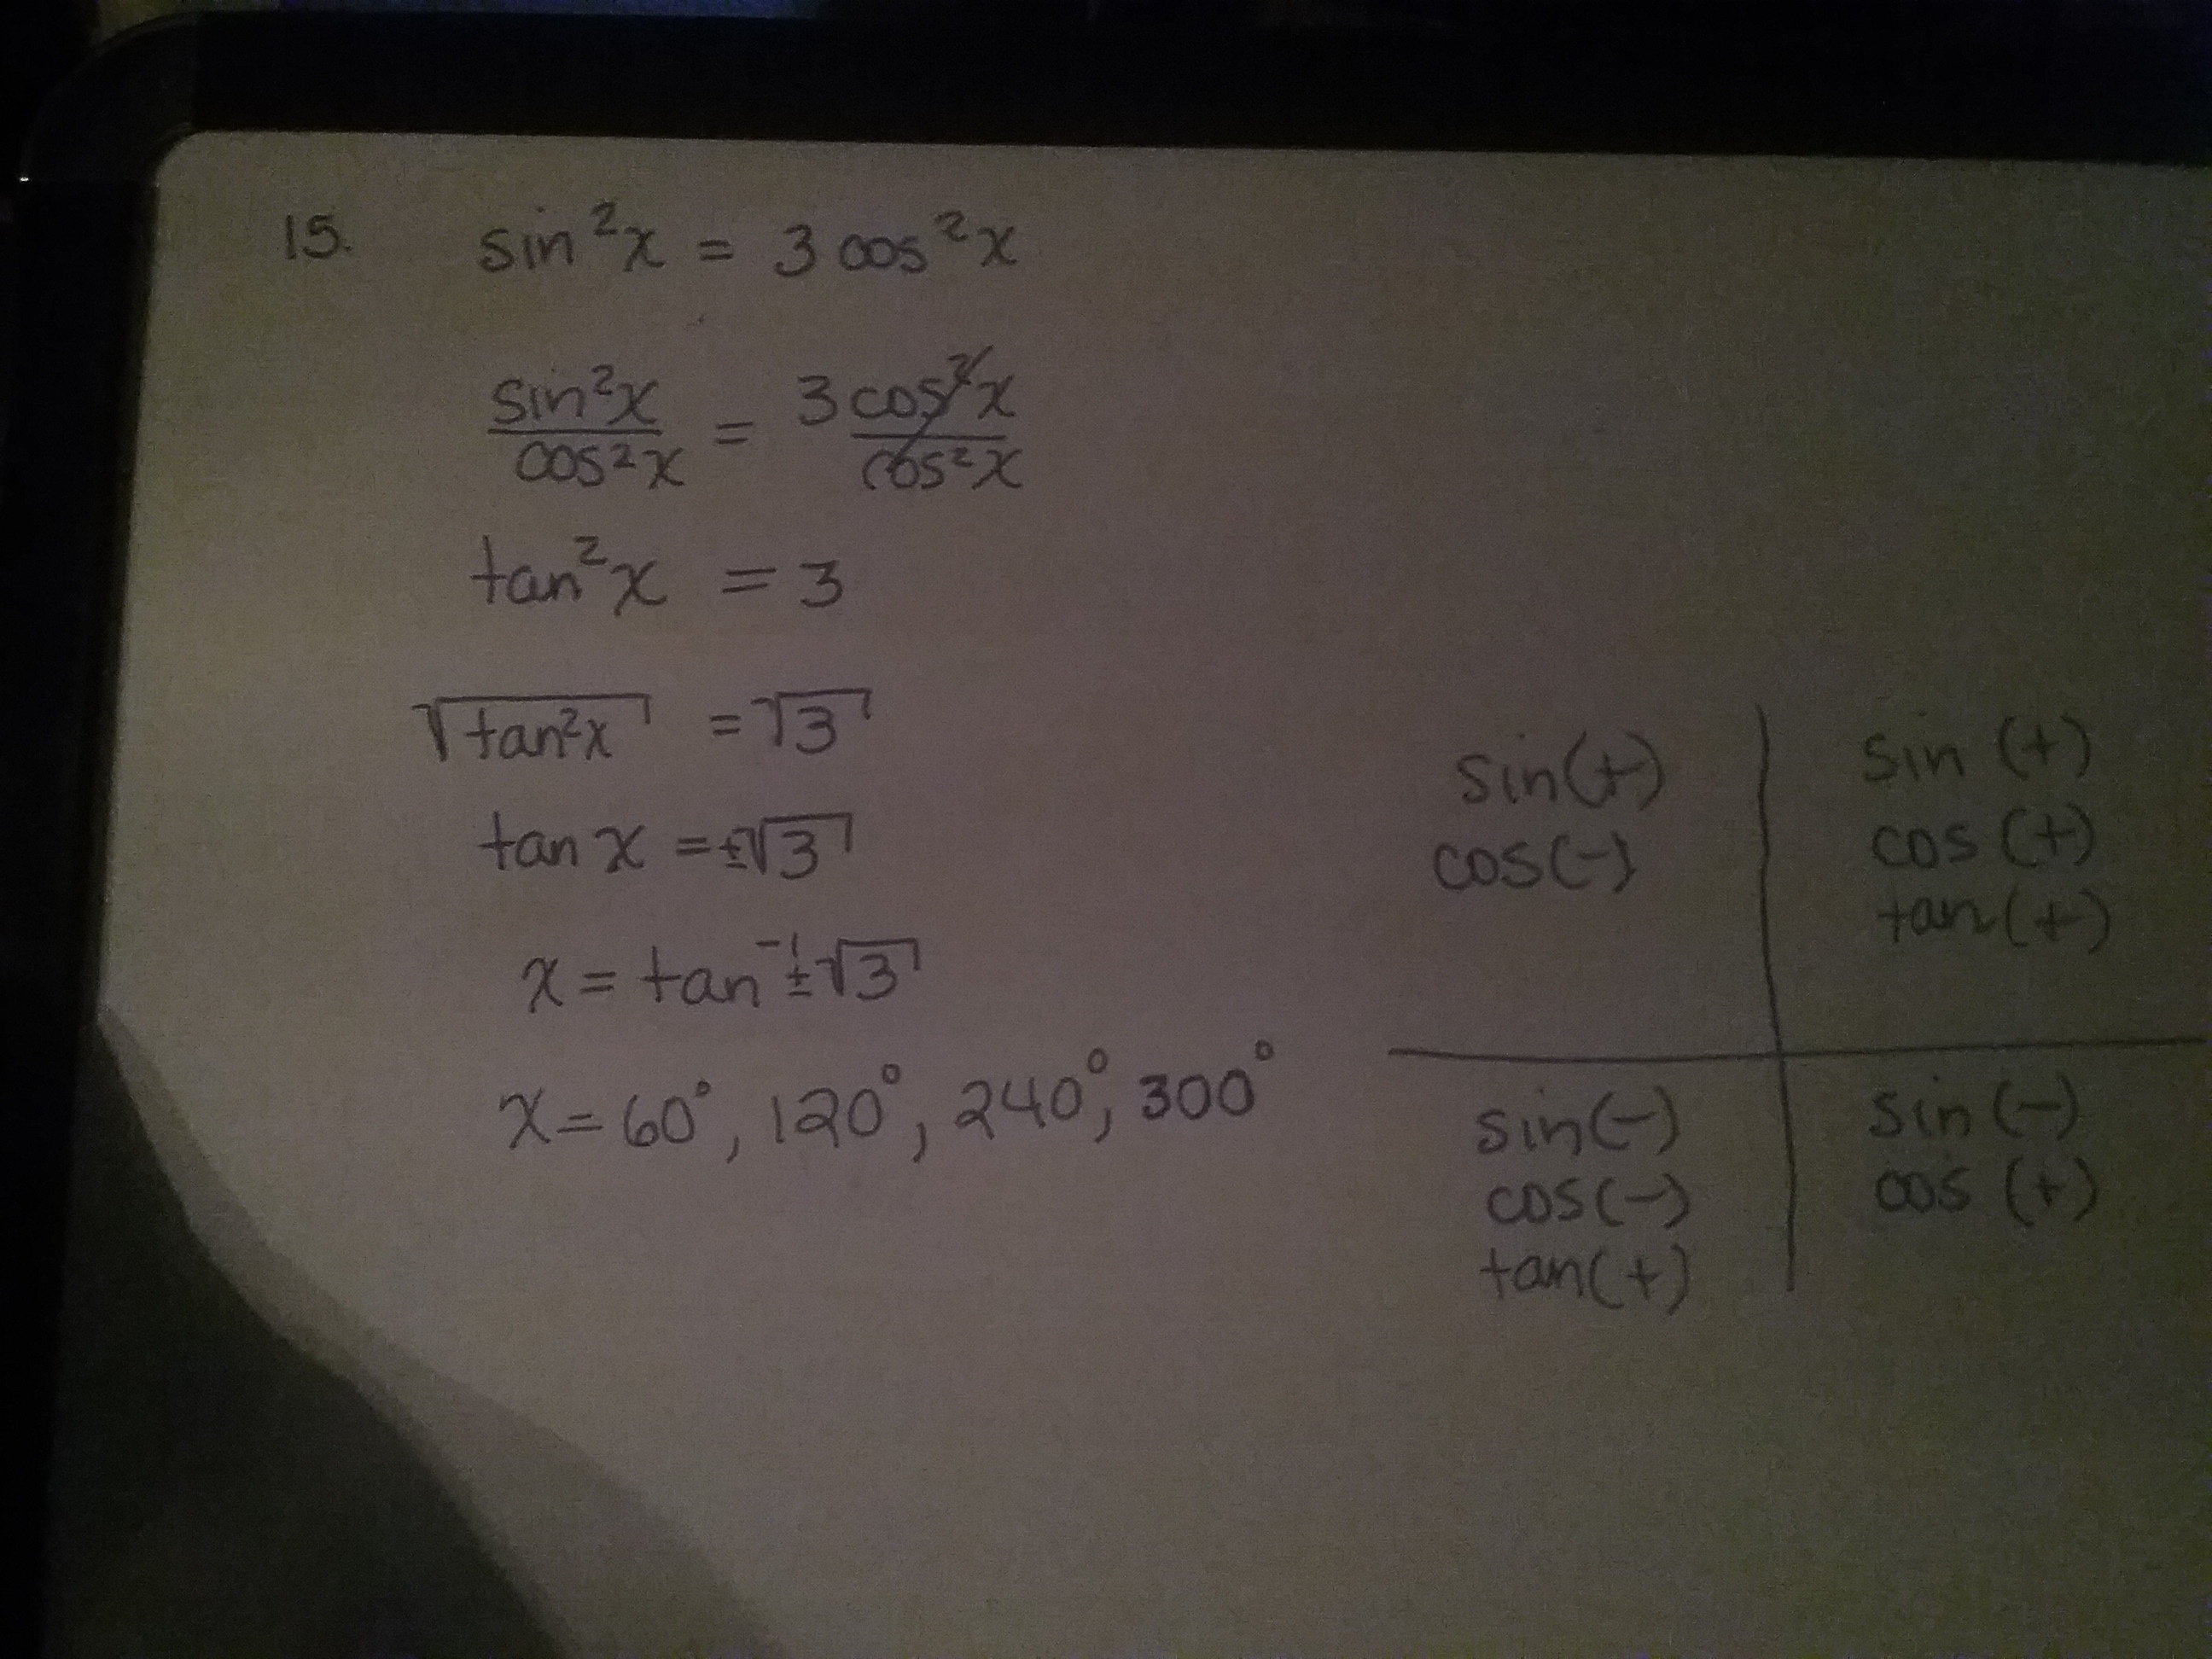 15. sin²x = 3 cos²x
sin²x/cos²x = 3 cos²x/cos²x
tan²x = 3
√tan²x = √3
tan x = ±√3
x = tan⁻¹ ±√3
x = 60°, 120°, 240°, 300°
sin(+)
cos(-)
sin (+)
cos (+)
tan (+)
sin(-)
cos(-)
tan(+)
sin (-)
cos (+)